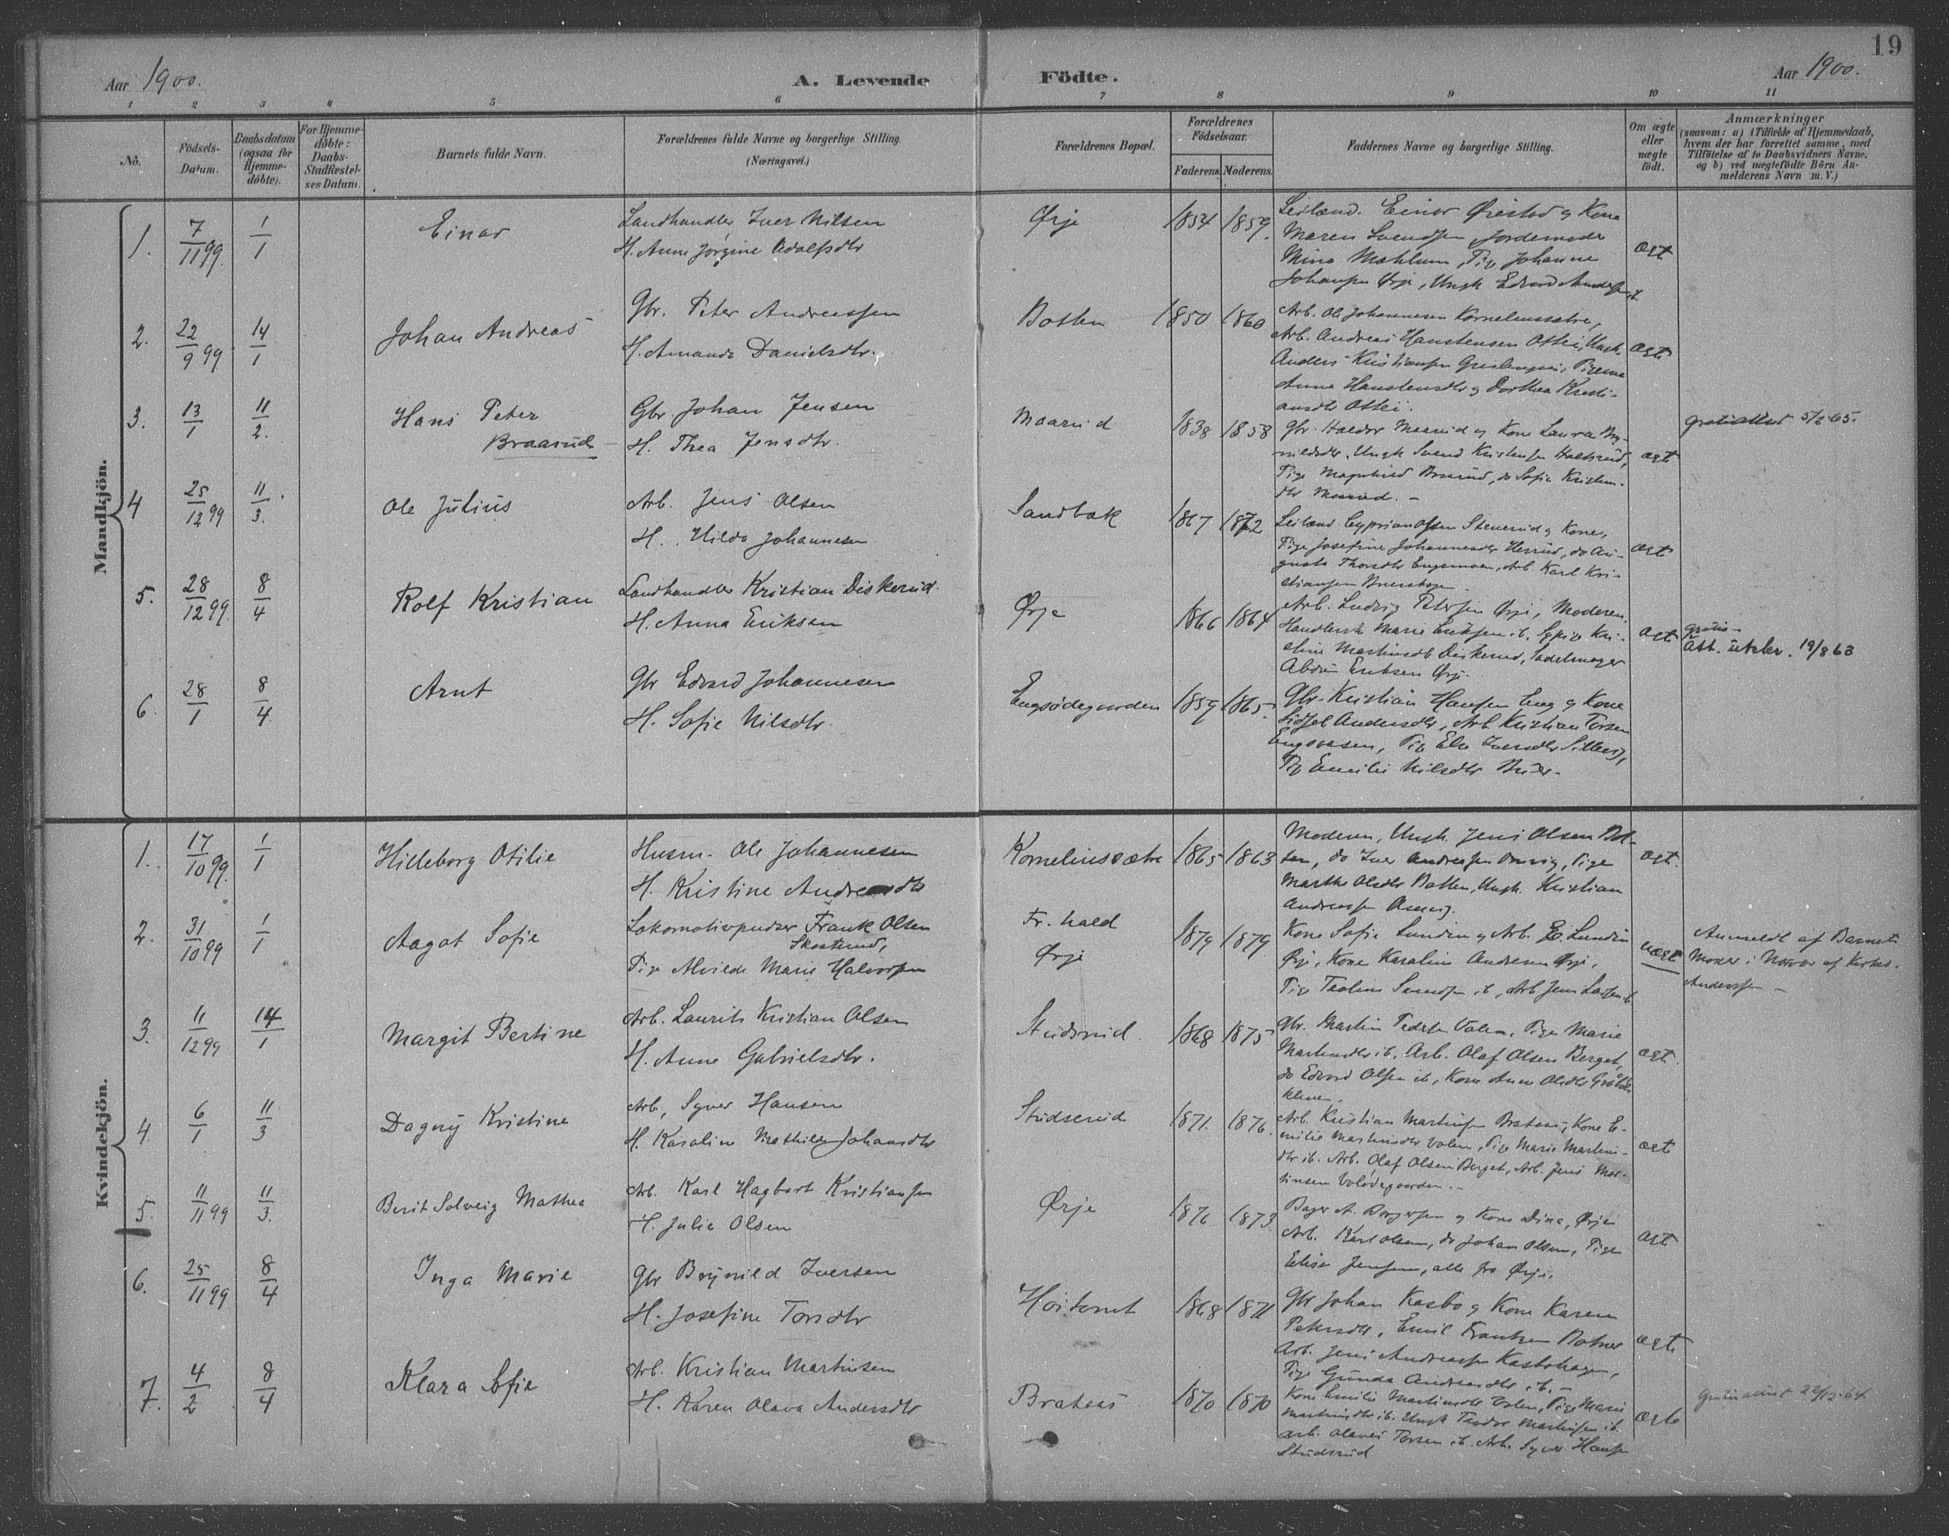 19
Aar 1900. A. Levende Födte. Aar 1900.
1 2 3 4 5 6 7 8 9 10 11
No.
Födsels-Datum.
Daabsdatum (ogsaa for Hjemmedöbte).
For Hjemmedöbte: Daabs-Stadfæstelses Datum.
Barnets fulde Navn.
Forældrenes fulde Navne og borgerlige Stilling. (Næringsvei.)
Forældrenes Bopæl.
Forældrenes Födselsaar.
Faderens. Moderens.
Faddernes Navne og borgerlige Stilling.
Om ægte eller uægte födt.
Anmærkninger
(saasom: a) i Tilfælde af Hjemmedaab, hvem der har forrettet samme, med Tilföielse af to Daabsvidners Navne, og b) ved uægtefödte Börn Anmelderens Navn m. V.)
Mandkjön.
1. 7/11 99. 1/1 Einar
Landhandler Iver Nilsen
H. Anne Jørgine Adolfsdtr
Ørje 1854 1859.
Leilænd. Einar Ørestad og Kone
Maren Svendsen Jordemoder
Mina Mæhlum, Pige Johanne
Johansen Ørje, Ungk. Edvard Andersen
ægt
2. 22/9 99 14/1 Johan Andreas
Gbr. Peter Andreassen
H. Amanda Danielsdtr.
Botten 1850 1860
Arb. Ole Johannesen Korneliussætre,
Arb. Andreas Hanstensen Ottei, Ungk.
Anders Kristiansen
Anna Hanstensdtr og Dorthea Kristi-
ansdtr Ottei.
ægte
3. 13/1 11/2. Hans Peter
Braarud
Gbr. Johan Jensen
H. Thea Jensdtr.
Maarud 1838 1858
Gbr. Halvor Maarud og Kone Laura Bry-
nildsdtr, Ungk Svend Kristensen
Pige Magnhild Braarud, do Sofie Kristen-
dtr Maarud. -
ægt
5/2 65.
4 25/12 99 11/3. Ole Julius
Arb. Jens Olsen
H. Hilda Johannesen
Sandbæk 1867 1872
Leilænd Cyprian Olsen Stenerud og Kone,
Pige Josefine Johannesdtr Herrud, do Au-
gusta Thorsdtr Engsmoen, Arb Karl Kri-
stiansen
ægt
5. 28/12 99. 8/4 Rolf Kristian
Landhandler Kristian Diskerud.
H. Anna Eriksen
Ørje 1866 1864
Arb. Ludvig Petersen Ørje, Moderen,
Handlersk Marie Eriksen ib. Kri-
stine Martinsdtr Diskerud, Sadelmager
Eriksen Ørje.
ægt
Att. utskr. 19/8 63
6. 28/1 8/4 Arnt
Gbr Edvard Johannesen
H. Sofie Nilsdtr.
Engsødegaarden 1859 1865.
Gbr. Kristian Hansen Eng og Kone
Andersdtr, Arb Kristian Torsen
Pige Else Iversdtr
Pige Emilie Nilsdtr
Kvindekjön.
1. 17/10 99. 1/1 Hilleborg Otilie
Husm. Ole Johannesen
H. Kristine Andreasdtr
Korneliussætre 1865 1863
Moderen, Ungk. Jens Olsen Bot-
ten, do Iver Andreasen Pige
Marthe Olsdtr Botten, Ungk. Kristian
Andreassen
ægt.
2. 31/10 99 1/1 Aagot Sofie
Lokomotivpudser Frank Olsen
Pige Alvilde Marie Halvorsen
Fr. hald
Ørje
1879 1879.
Kone Sofie Lundin og Arb. E. Lundin
Ørje, Kone Karoline Andresen Ørje,
Pige ib, Arb Jens
uægt
Anmeldt af Barnets
Moder i Nærvær af Kirkes.
Anderssen -
3. 11/12 99 14/1 Margit Bertine
Arb. Laurits Kristian Olsen
H. Anne Gabrielsdtr.
Studsrud. 1868 1875
Gbr. Martin Pedersen Volen, Pige Marie
Martinsdtr ib. Arb. Olaf Olsen Berget,
do Edvard Olsen ib, Kone Anne Olsdtr
ægt.
4. 6/1 11/3 Dagny Kristine
Arb. Syver Hansen
H. Karoline Mathilde Johansdtr
Studserud 1871. 1876.
Arb. Kristian Martinsen Brataas, Kone E-
milie Martinsdtr Volen, Pige Marie Martins-
dtr ib. Arb. Olaf Olsen Berget, Arb. Jens Mar-
tinsen Volødegaarden. -
ægt
5. 11/11 99 11/3. Berit Solveig Mathea
Arb. Karl Hagbart Kristiansen
H. Julie Olsen
Ørje 1876 1873.
Bager A. Borgersen og Kone Dina, Ørje
Arb. Karl Olsen, do Johan Olsen, Pige
Elise Jensen, alle fra Ørje.
ægt
6. 25/11 99 8/4 Inga Marie
Gbr Brynild Iversen
H. Josefine Torsdtr
Høitomt 1868 1871
Gbr Johan Kasbo og Kone Karen
Petersdtr, Emil Frantzen
Arb. Jens Andreassen Kasbohagen,
Pige Gunda Andreasdtr ib. -
ægt
7. 4/2 8/4 Klara Sofie
Arb. Kristian Martinsen
H. Karen Olava Andersdtr
Brataas 1870 1870
Kone Emilie Martinsdtr Volen, Pige Marie
Martinsdtr ib. Ungk Teodor Martinsen ib.
Arb. Olaves Torsen ib. Arb. Syver Hansen
Studsrud
ægte